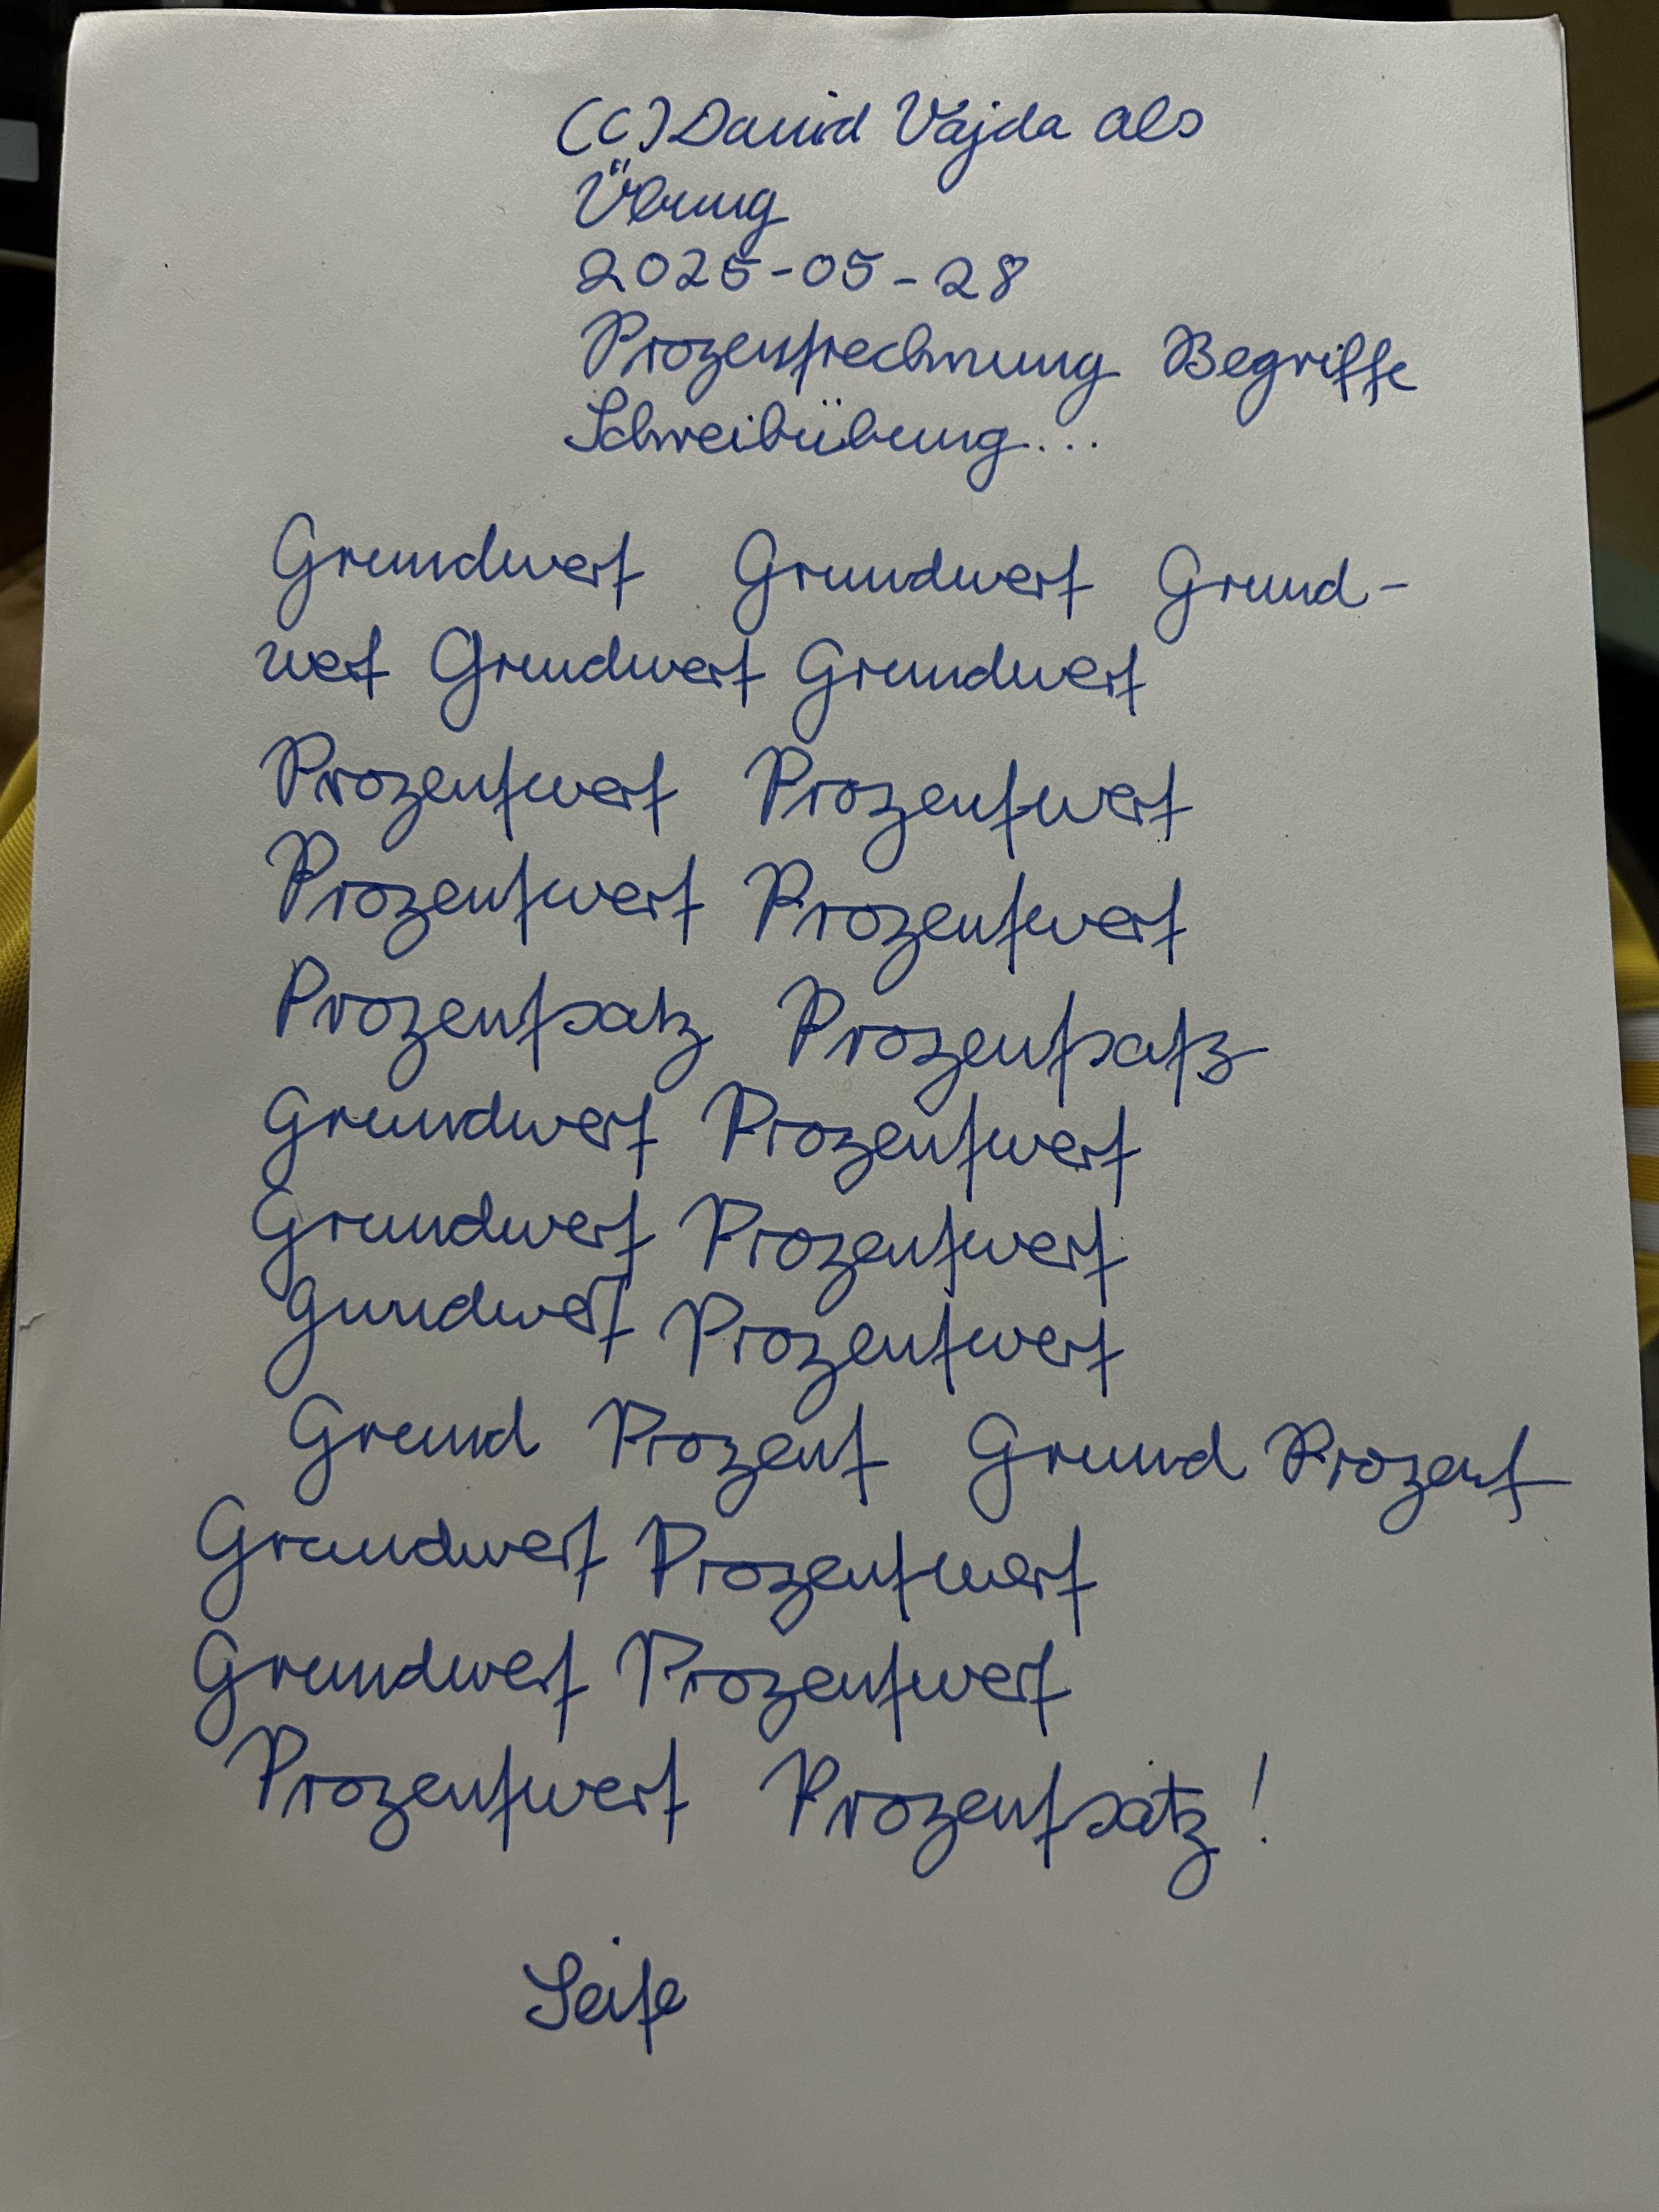 (C) David Vajda als
Übung
2025-05-28
Prozentrechnung Begriffe
Schreibübung...
Grundwert Grundwert Grund-
wert Grundwert Grundwert
Prozentwert Prozentwert
Prozentwert Prozentwert
Prozentsatz Prozentsatz
Grundwert Prozentwert
Grundwert Prozentwert
Gundwert Prozentwert
Grund Prozent Grund Prozent
Grundwert Prozentwert
Grundwert Prozentwert
Prozentwert Prozentsatz!
Seife